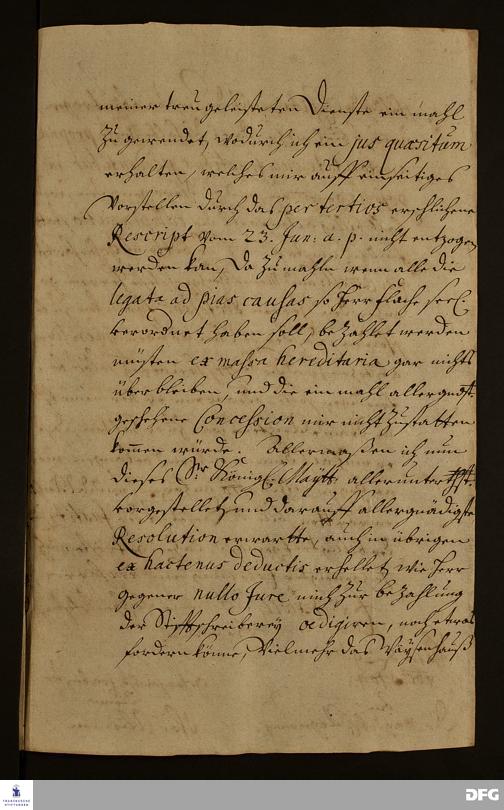 meiner treu geleisteten Dienste ein mahl
zugewendet, wodurch ich ein jus quæsitum
erhalten, welches mir auff einseitiges
Vorstellen durch das per tertios erschlichene
Rescript vom 23. Jan: a. p. nicht entzogen
werden kan, Da zumahln wenn alle die
legata ad pias causas so Herr Flache seel.
verordnet haben soll, bezahlet werden
müsten ex massa hereditaria gar nichts
überbleiben, und die ein mahl allergndst.
geschehene Concession mir nicht zustatten
kom̅en würde. Allermaßen ich nun
dieses Sr. Königl. Maytt. alleruntertthst.
vorgestellet, und darauff allergnädigste
Resolution erwartte, auch im übrigen
ex hactenus deductis erhellet, wie Herr
Gegener nullo Jure mich zur bezahlung
der Stifftschreiberey, noch etwas
fordern könne, Vielmehr das Waysenhauß
FRANCKESCHE STIFTUNGEN
DFG